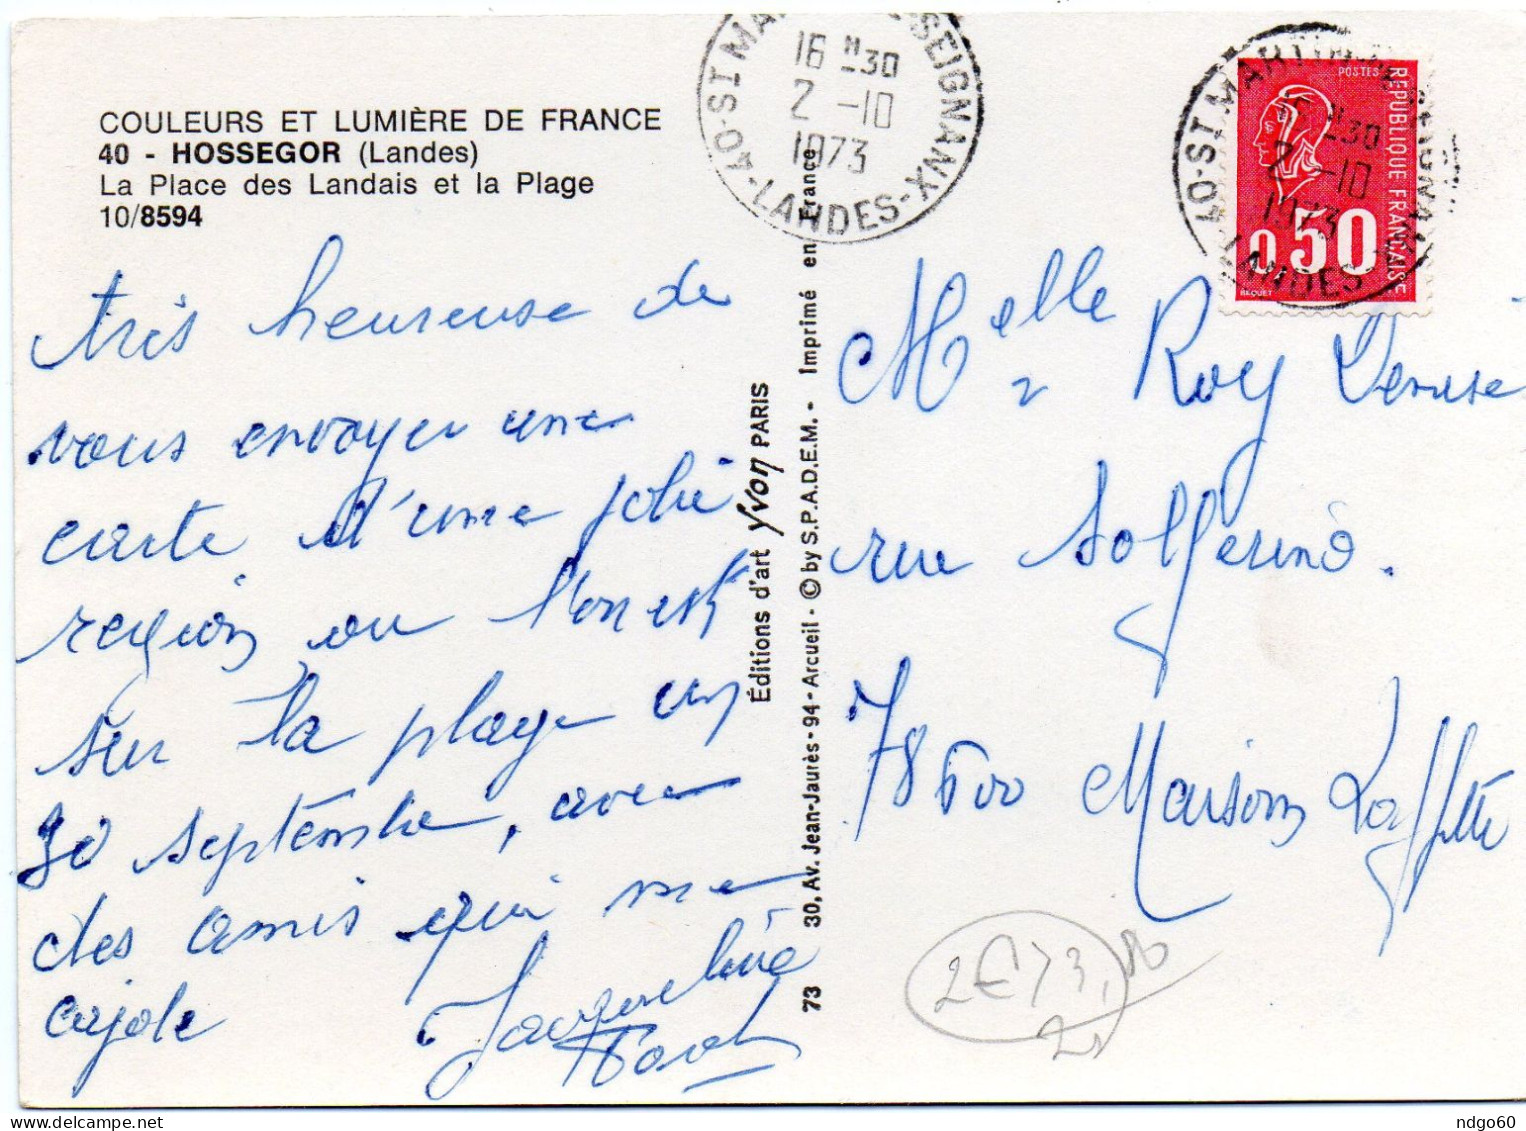 COULEURS ET LUMIÈRE DE FRANCE
40 - HOSSEGOR (Landes)
La Place des Landais et la Plage
10/8594
très heureuse de
vous envoyer une
carte d'une jolie
region ou l'on est
sur la plage un
30 septembre, avec
des amis qui me
cajole
Jacqueline
Éditions d'art Yvon PARIS
73 30, Av. Jean-Jaurès - 94 - Arcueil - © by S.P.A.D.E.M. - Imprimé en France
40-ST MARTIN DE SEIGNANX
16 H 30
2 -10
1973
LANDES
POSTES
REPUBLIQUE FRANÇAISE
0,50
BEQUET
40-ST MARTIN DE SEIGNANX
16 H 30
2 -10
1973
LANDES
Melle Roy Denise
rue Solferino.
78600 Maison Laffitte
2€
ndgo60